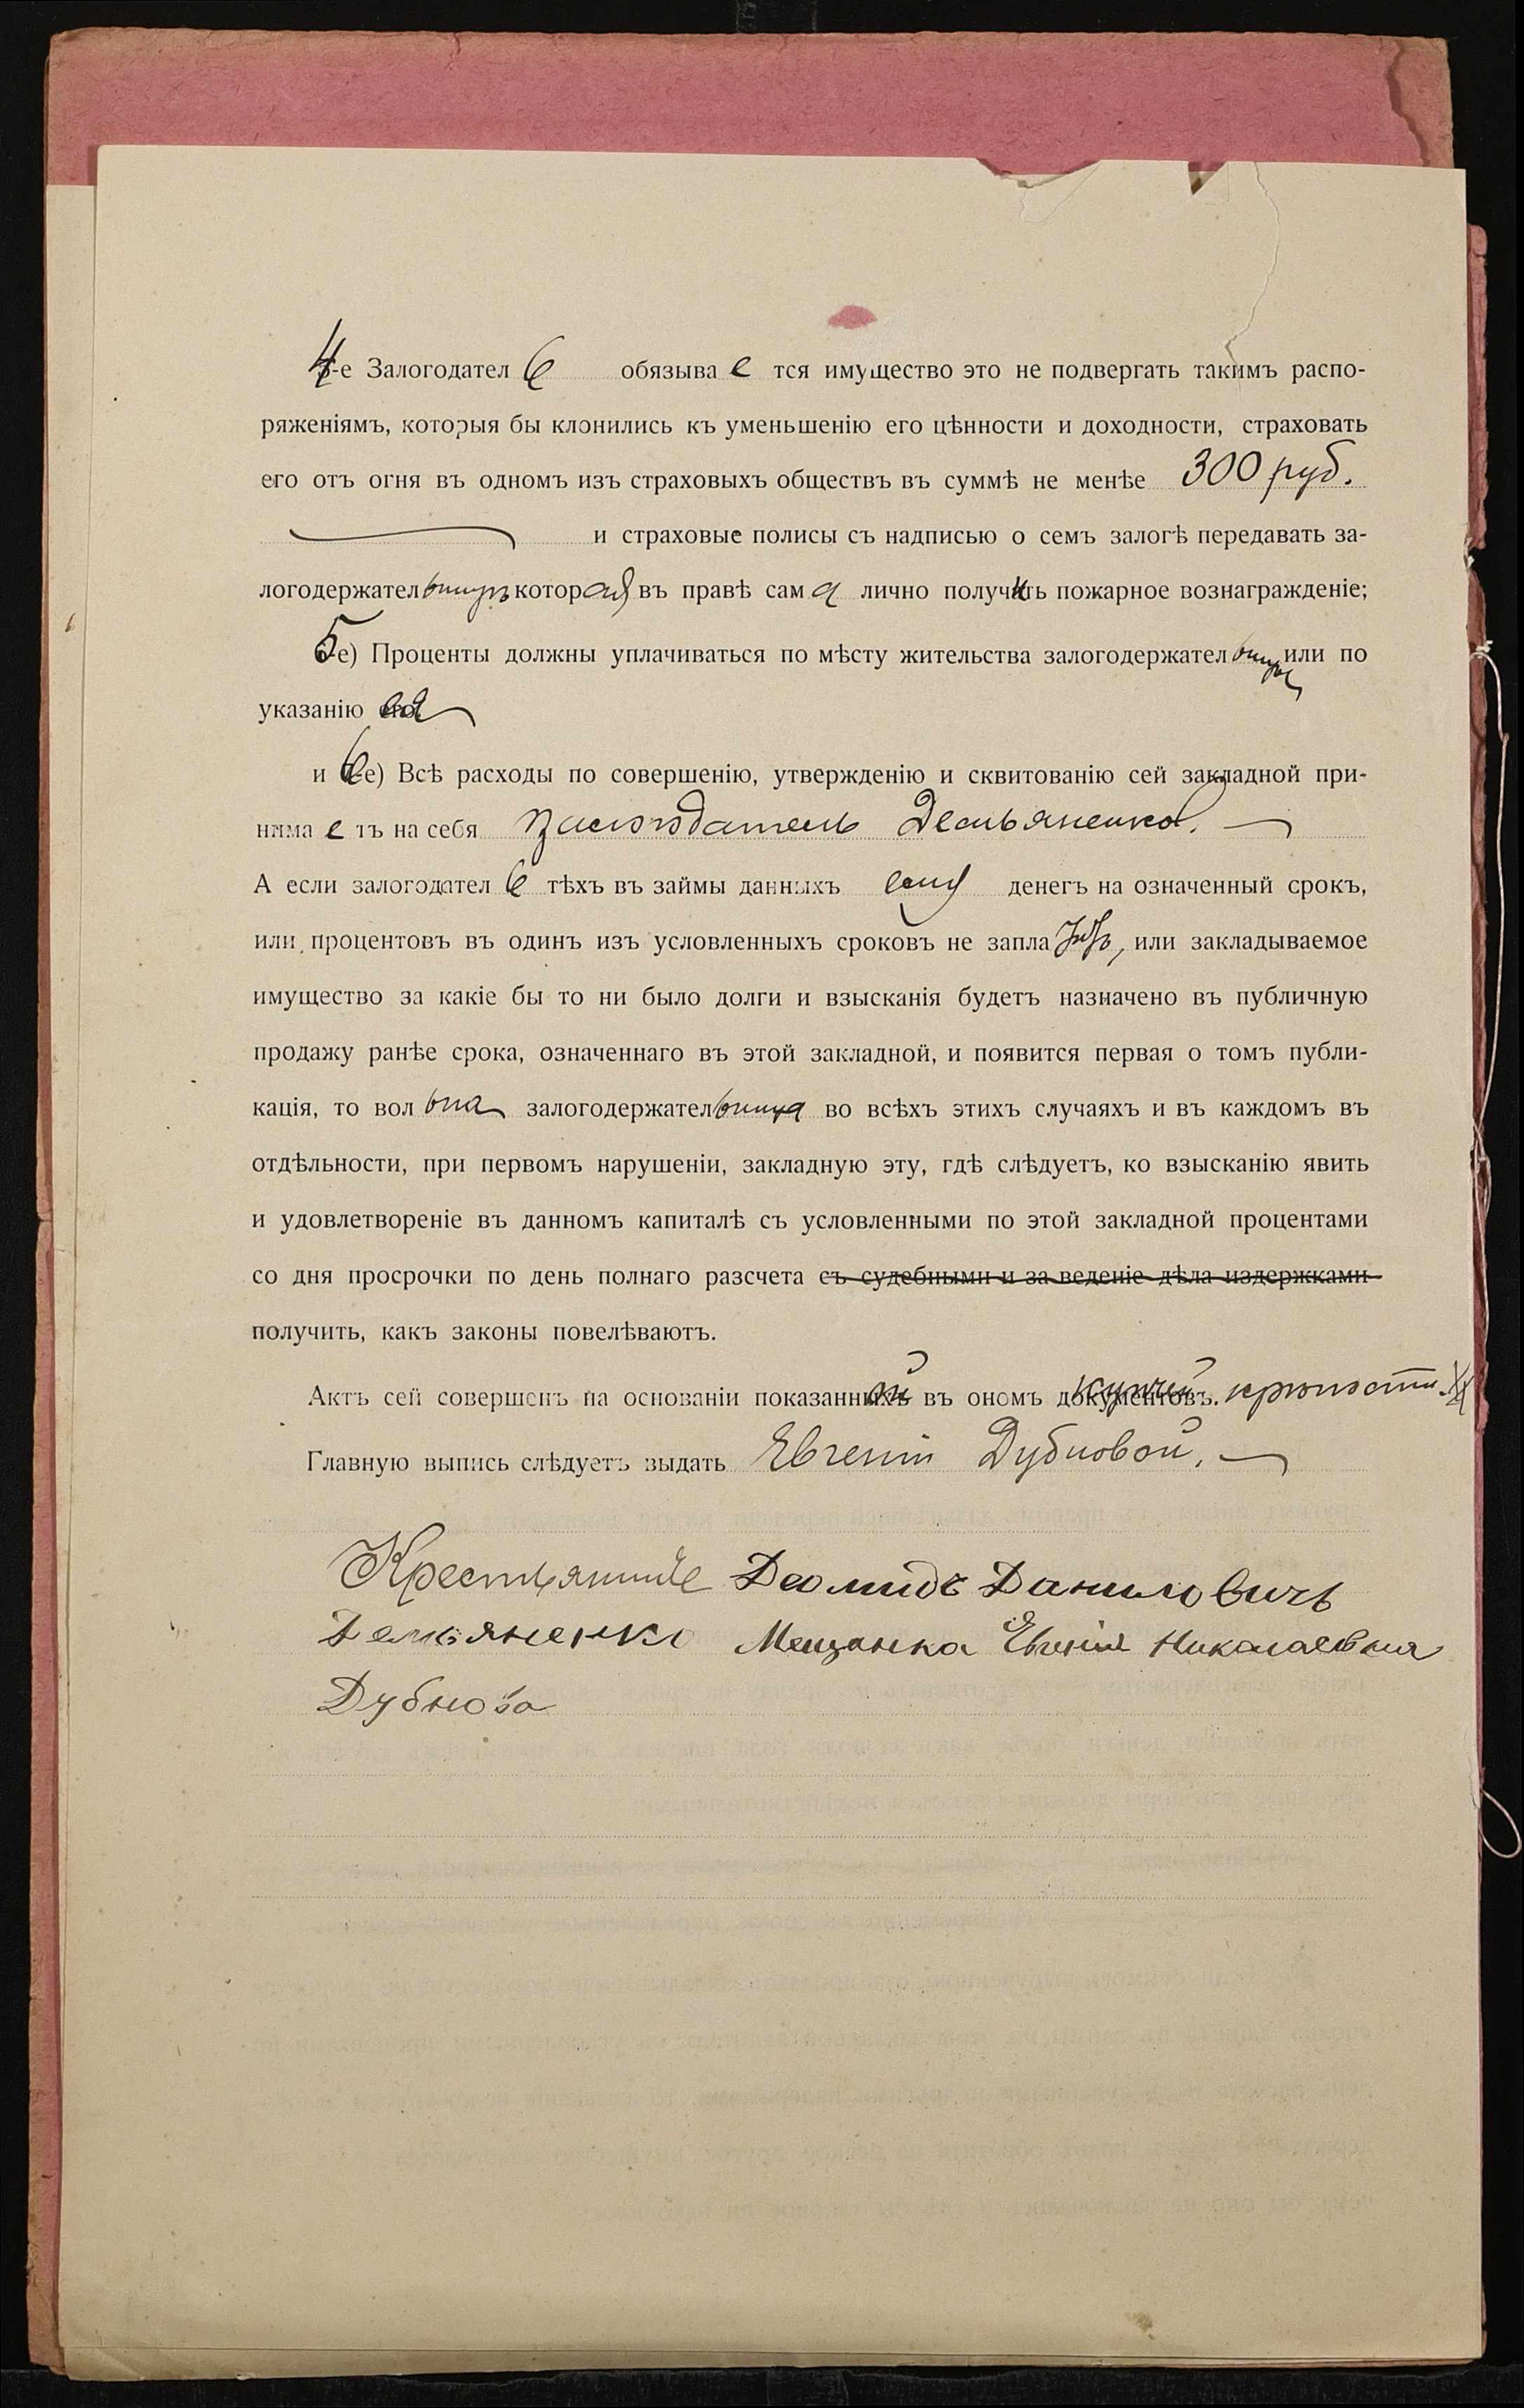 4-е Залогодател ь обязыва е тся имущество это не подвергать такимъ распо-
ряженіямъ, которыя бы клонились къ уменьшенію его цѣнности и доходности, страховать
его отъ огня въ одномъ изъ страховыхъ обществъ въ суммѣ не менѣе 300 руб.
и страховые полисы съ надписью о семъ залогѣ передавать за-
логодержательницѣ которая въ правѣ сам а лично получить пожарное вознагражденіе;
5-е) Проценты должны уплачиваться по мѣсту жительства залогодержательницы или по
указанію ея
и 6-е) Всѣ расходы по совершенію, утвержденію и сквитованію сей закладной при-
нима е тъ на себя залогодатель Демьяненко.
А если залогодател ь тѣхъ въ займы данныхъ ему денегъ на означенный срокъ,
или процентовъ въ одинъ изъ условленныхъ сроковъ не заплатитъ, или закладываемое
имущество за какіе бы то ни было долги и взысканія будетъ назначено въ публичную
продажу ранѣе срока, означеннаго въ этой закладной, и появится первая о томъ публи-
кація, то вольна залогодержательница во всѣхъ этихъ случаяхъ и въ каждомъ въ
отдѣльности, при первомъ нарушеніи, закладную эту, гдѣ слѣдуетъ, ко взысканію явить
и удовлетвореніе въ данномъ капиталѣ съ условленными по этой закладной процентами
со дня просрочки по день полнаго разсчета съ судебными и за веденіе дѣла издержками
получить, какъ законы повелѣваютъ.
Актъ сей совершенъ на основаніи показанной въ ономъ купчей крѣпости.
Главную выпись слѣдуетъ выдать Евгеніи Дубновой.
Крестьянинъ Деомидъ Даниловичъ
Демьяненко Мещанка Евгенія Николаевна
Дубнова